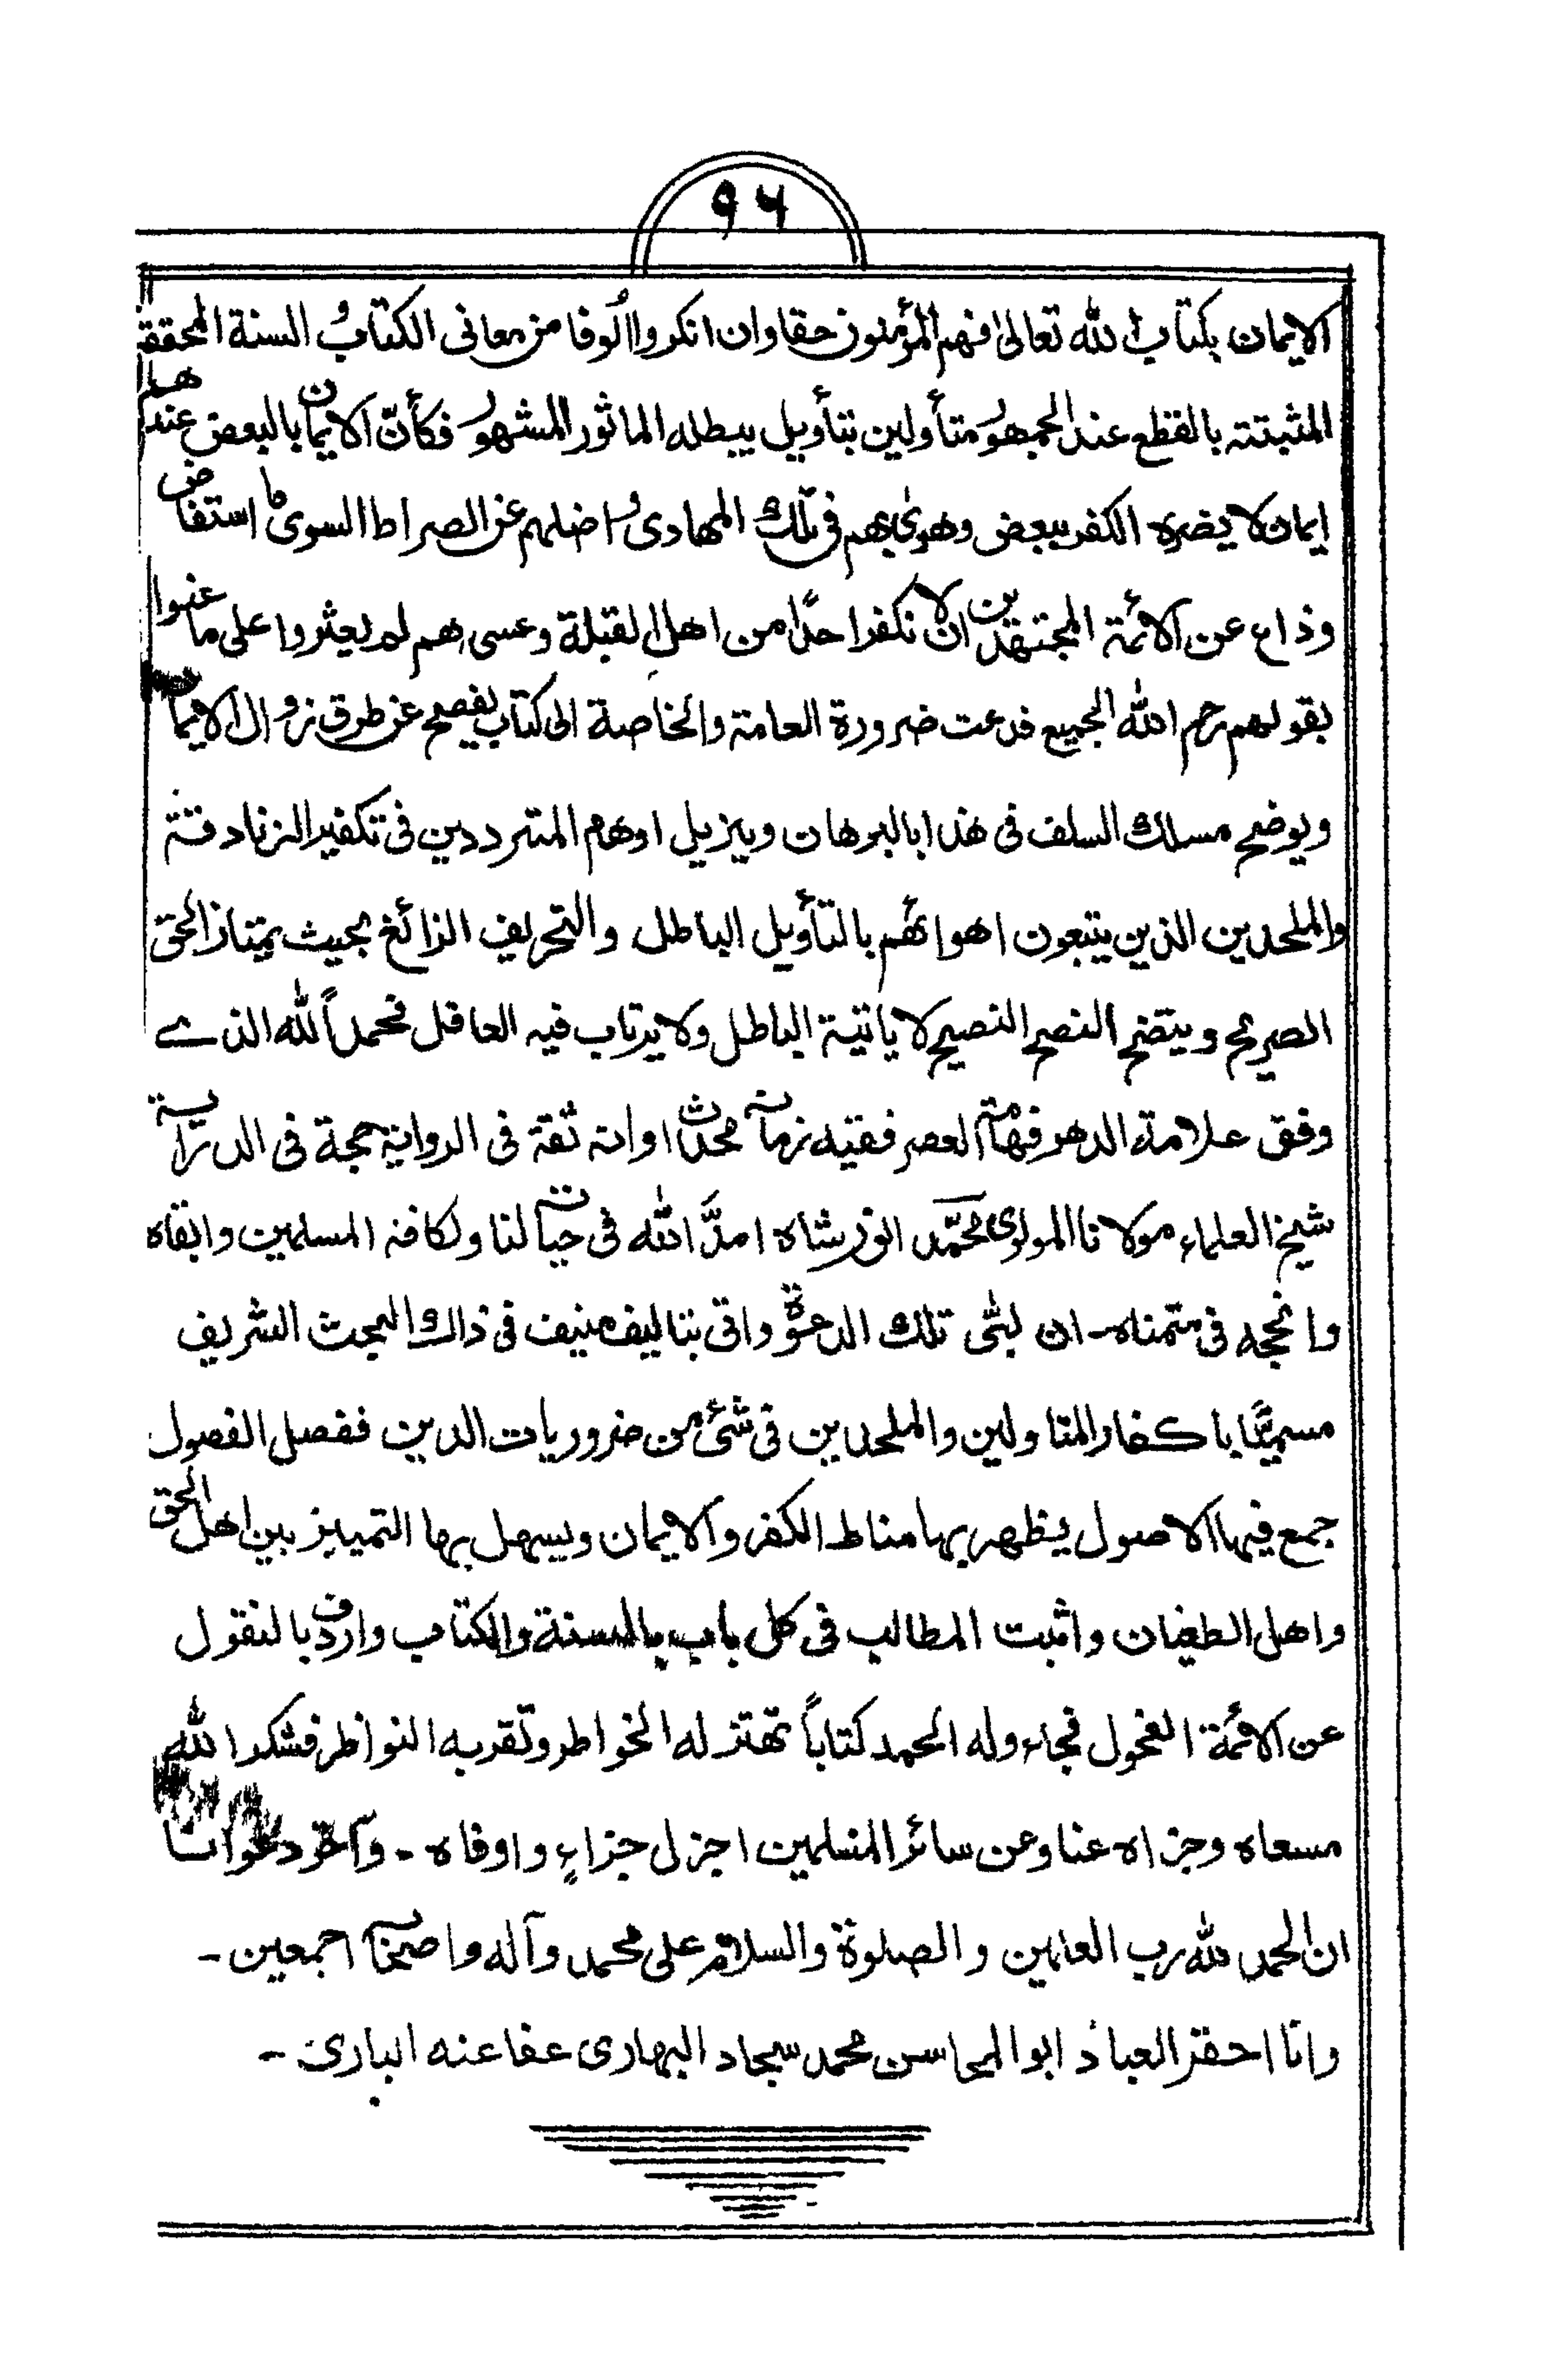 ٩٦
الايمان بكتاب الله تعالى فهم المؤمنون حقا وان انكروا الوفا من معانى الكتاب و السنة المحققة
المثبتة بالقطع عند الجمهور متأولين بتأويل يبطله الماثور المشهور فكأنّ الايمان بالبعض عندهم
ايمان لا يضره الكفر ببعض وهوى بهم فى تلك المهادى و اضلهم عن الصراط السوى ما استفاض
وذاع عن الائمة المجتهدين ان لا نكفر احدًا من اهل القبلة وعسى هم لم يعثروا على ما عنوا
بقولهم رحم الله الجميع فدعت ضرورة العامة والخاصة الى كتاب يفصح عن طرق زوال الايمان
ويوضح مسلك السلف فى هذا بالبرهان ويزيل اوهام المترددين فى تكفير الزنادقة
والملحدين الذين يتبعون اهوائهم بالتأويل الباطل والتحريف الزائغ بحيث يمتاز الحق
الصريح ويتضح النصح النصيح لا ياتية الباطل ولا يرتاب فيه العاقل فحمداً لله الذے
وفق علامة الدهر فهامة العصر فقيه زمانه محدث اوانه ثقة فى الرواية حجة فى الدراية
شيخ العلماء مولانا المولوى محمّد انور شاه امدّ الله فى حياته لنا ولكافة المسلمين وابقاه
وانجحه فى متمناه - ان لبّى تلك الدعوة واتى بتاليف منيف فى ذالك البحث الشريف
مسميًّا باكفار المتاولين والملحدين فى شئ من ضروريات الدين ففصل الفصول
جمع فيها الاصول يظهر بها مناط الكفر والايمان ويسهل بها التمييز بين اهل الحق
واهل الطغيان واثبت المطالب فى كل باب بالسنة والكتاب واردف بالنقول
عن الائمة الفحول فجاء وله الحمد كتاباً تهتز له الخواطر وتقربه النواظر فشكر الله
مسعاه وجزاه عنا وعن سائر المسلمين اجزل جزاءٍ واوفاه - وآخر دعوانا
ان الحمد لله رب العالمين والصلوة والسلام على محمد وآله واصحابه اجمعين -
وانا احقر العباد ابو المحاسن محمد سجاد البهارى عفا عنه البارى -